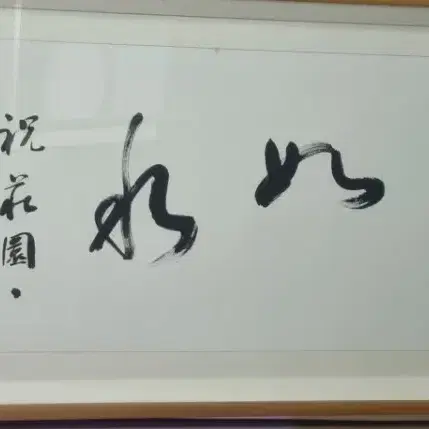 如水
祝莊園